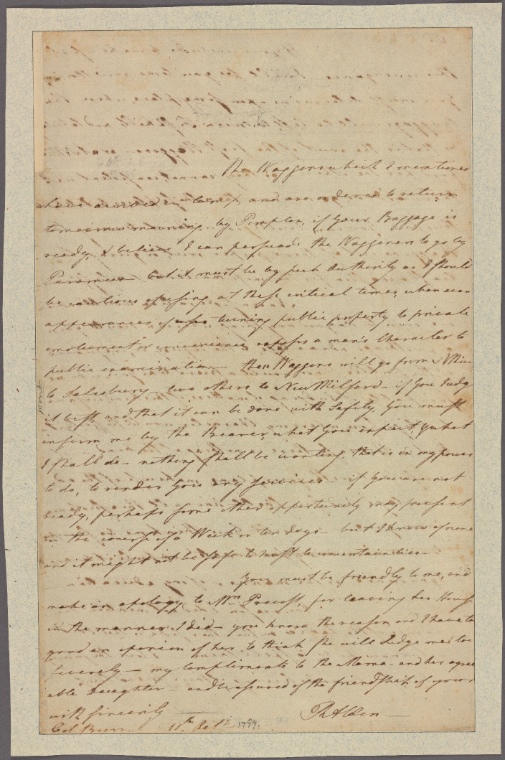 The Waggoner which I mentioned
and are ordered to return
tomorrow morning by Pompton, if your Baggage is
ready, I believe I can persuade the Waggoners to go by
Paramus but it must be by such Authority as I should
be cautious of using at these critical times, when
appearances of turning public property to private
emolument or convenience exposes a man's Character to
public examination. these Waggons will go from
to Salesbury, two others to New Milford - if you Judge
it best and that it can be done with Safety, you must
inform me by the Bearer, what you expect & what
I shall do - nothing shall be wanting that is in my power
to do, to render you any Services - if you are not
ready, perhaps some other opportunity may present
in the course of a Week or ten days - but I know of none
and it might not be safe to trust to uncertainties -
You must be friendly to me, and
make an apology to Mrs Prevost, for leaving her House
in the manner I did - you know the reason and I have too
good an opinion of her, to think she will Judge me too
severely - my compliments to the Mama and her agree
able Daughter - and be assured of the friendship of yours
with sincerity
Col Burr 1779. Alden